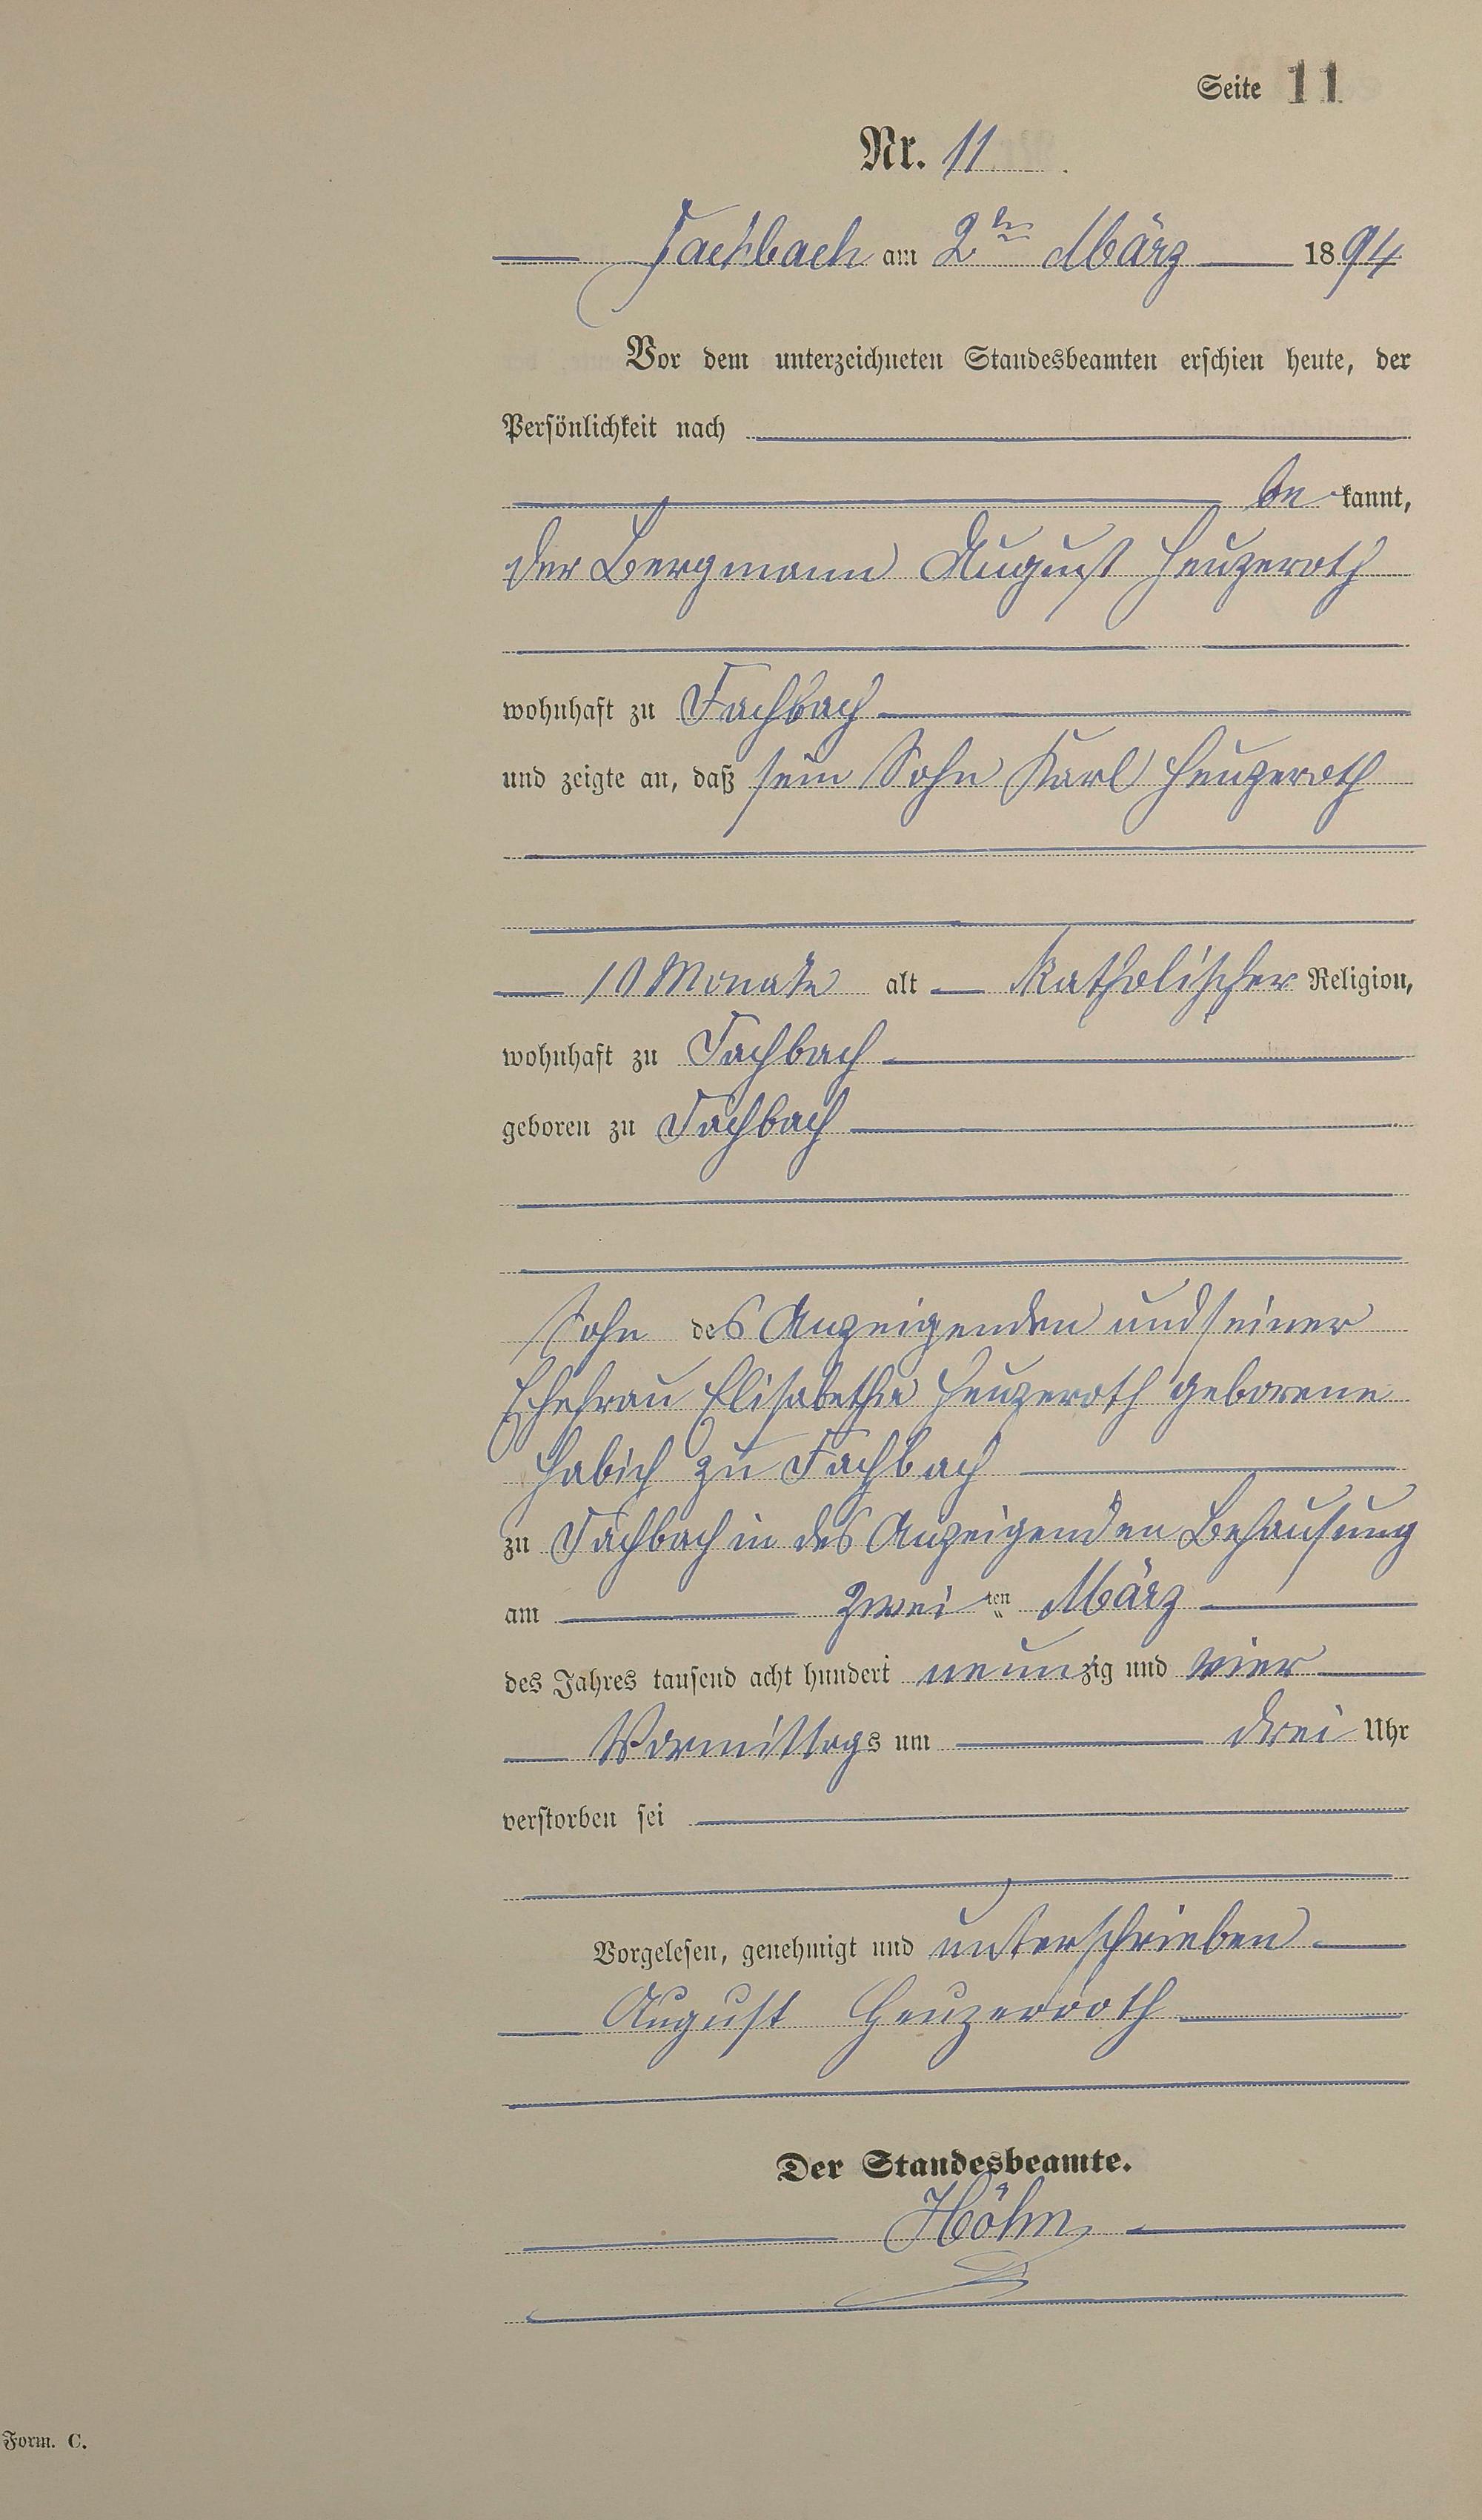 Seite 11
Nr. 11.
Fachbach am 2ten März 1894
Vor dem unterzeichneten Standesbeamten erschien heute, der
Persönlichkeit nach
bekannt,
der Bergmann August Heuzeroth
wohnhaft zu Fachbach
und zeigte an, daß sein Sohn Karl Heuzeroth
10 Monate alt katholischer Religion,
wohnhaft zu Fachbach
geboren zu Fachbach
Sohn des Anzeigenden und seiner
Ehefrau Elisabetha Heuzeroth geborene
Habich zu Fachbach
zu Fachbach in des Anzeigenden Behausung
am zweiten März
des Jahres tausend acht hundert neunzig und vier
Vormittags um drei Uhr
verstorben sei
Vorgelesen, genehmigt und unterschrieben
August Heuzerooth
Der Standesbeamte.
Höhn
Form. C.